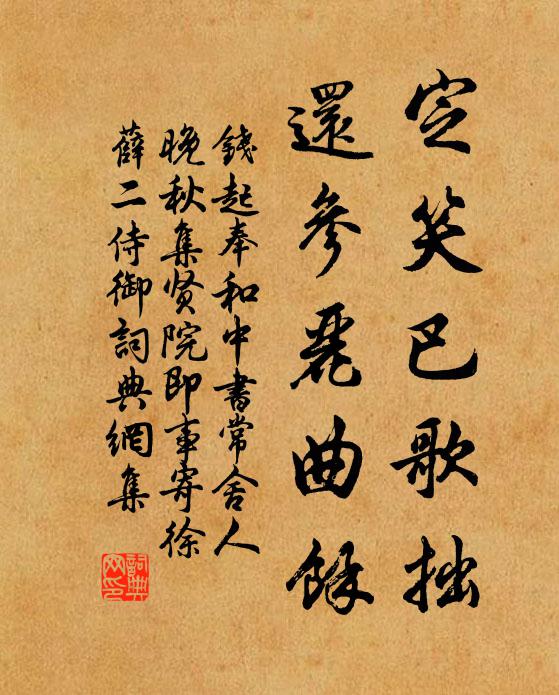 定笑巴歌拙
還參麗曲餘
錢起奉和中書常舍人
晚秋集賢院即事寄徐
薛二侍御詞典網集
詞典网印